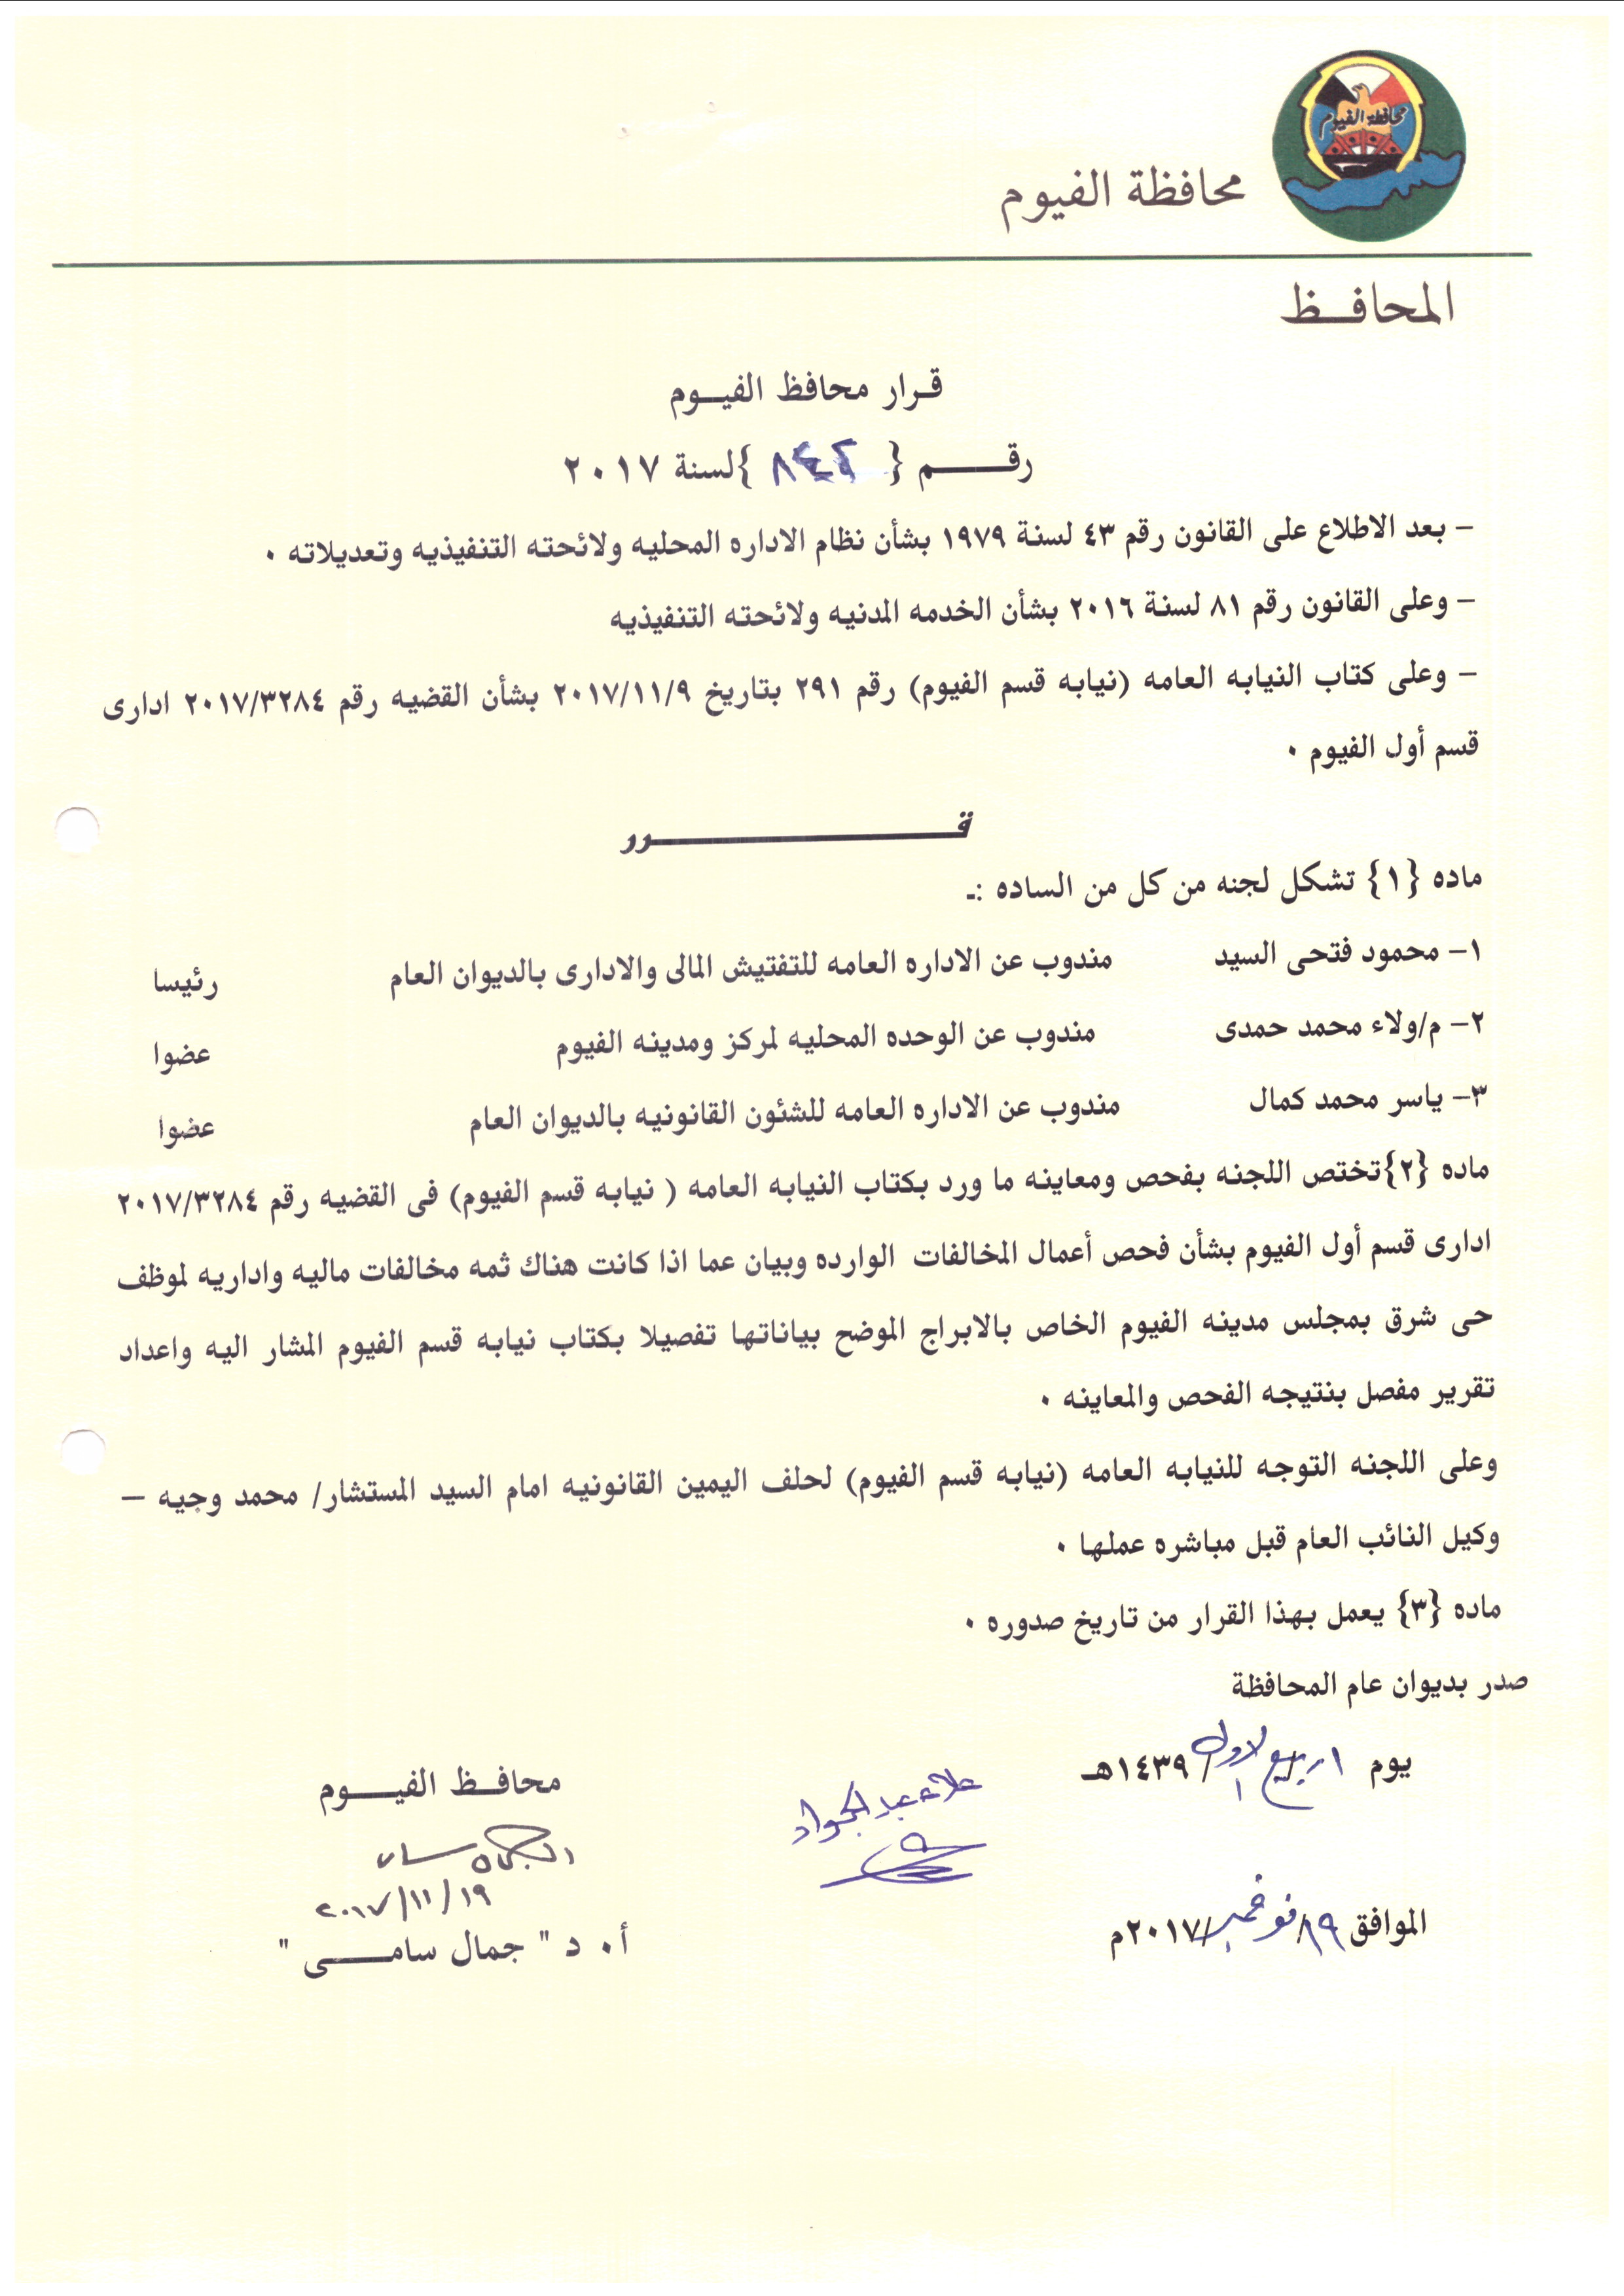 محافظة الفيوم
محافظة الفيوم
المحافـظ
قـرار محافظ الفيـوم
رقـــم { ٨٤٢ }لسنة ٢٠١٧
– بعد الاطلاع على القانون رقم ٤٣ لسنة ١٩٧٩ بشأن نظام الاداره المحليه ولائحته التنفيذيه وتعديلاته ٠
– وعلى القانون رقم ٨١ لسنة ٢٠١٦ بشأن الخدمه المدنيه ولائحته التنفيذيه
– وعلى كتاب النيابه العامه (نيابه قسم الفيوم) رقم ٢٩١ بتاريخ ٢٠١٧/١١/٩ بشأن القضيه رقم ٢٠١٧/٣٢٨٤ ادارى
قسم أول الفيوم ٠
قـــــــــرر
ماده {١} تشكل لجنه من كل من الساده :ـ
١– محمود فتحى السيد مندوب عن الاداره العامه للتفتيش المالى والادارى بالديوان العام رئيسا
٢– م/ولاء محمد حمدى مندوب عن الوحده المحليه لمركز ومدينه الفيوم عضوا
٣– ياسر محمد كمال مندوب عن الاداره العامه للشئون القانونيه بالديوان العام عضوا
ماده {٢}تختص اللجنه بفحص ومعاينه ما ورد بكتاب النيابه العامه ( نيابه قسم الفيوم) فى القضيه رقم ٢٠١٧/٣٢٨٤
ادارى قسم أول الفيوم بشأن فحص أعمال المخالفات الوارده وبيان عما اذا كانت هناك ثمه مخالفات ماليه واداريه لموظف
حى شرق بمجلس مدينه الفيوم الخاص بالابراج الموضح بياناتها تفصيلا بكتاب نيابه قسم الفيوم المشار اليه واعداد
تقرير مفصل بنتيجه الفحص والمعاينه ٠
وعلى اللجنه التوجه للنيابه العامه (نيابه قسم الفيوم) لحلف اليمين القانونيه امام السيد المستشار/ محمد وجيه –
وكيل النائب العام قبل مباشره عملها ٠
ماده {٣} يعمل بهذا القرار من تاريخ صدوره ٠
صدر بديوان عام المحافظة
يوم ١/ربيع الاول/١٤٣٩هـ
علاء عبد الجواد
محافـظ الفيـــوم
٢٠١٧/١١/١٩
الموافق ١٩/نوفمبر/٢٠١٧م
أ٠ د " جمال سامـــى "